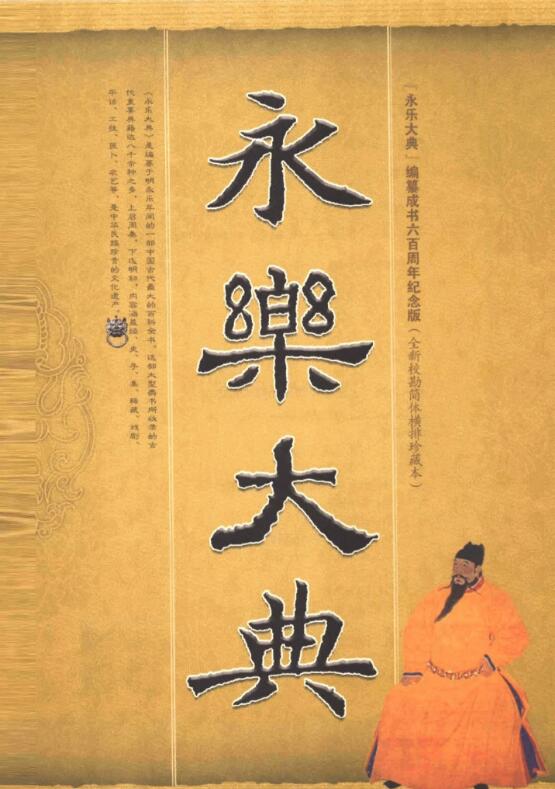 『永乐大典』编纂成书六百周年纪念版（全新校勘简体横排珍藏本）
永樂大典
《永乐大典》是编纂于明永乐年间的一部中国古代最大的百科全书。这部大型类书所收录的古
代重要典籍达八千余种之多，上启周秦，下迄明初，内容涵盖经、史、子、集、释藏、戏剧、
平话、工技、医卜、农艺等，是中华民族珍贵的文化遗产。